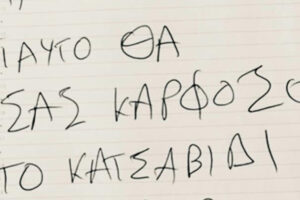 ΓΙΑΥΤΟ ΘΑ
ΣΑΣ ΚΑΡΦΟΣΟ
ΤΟ ΚΑΤΣΑΒΙΔΙ